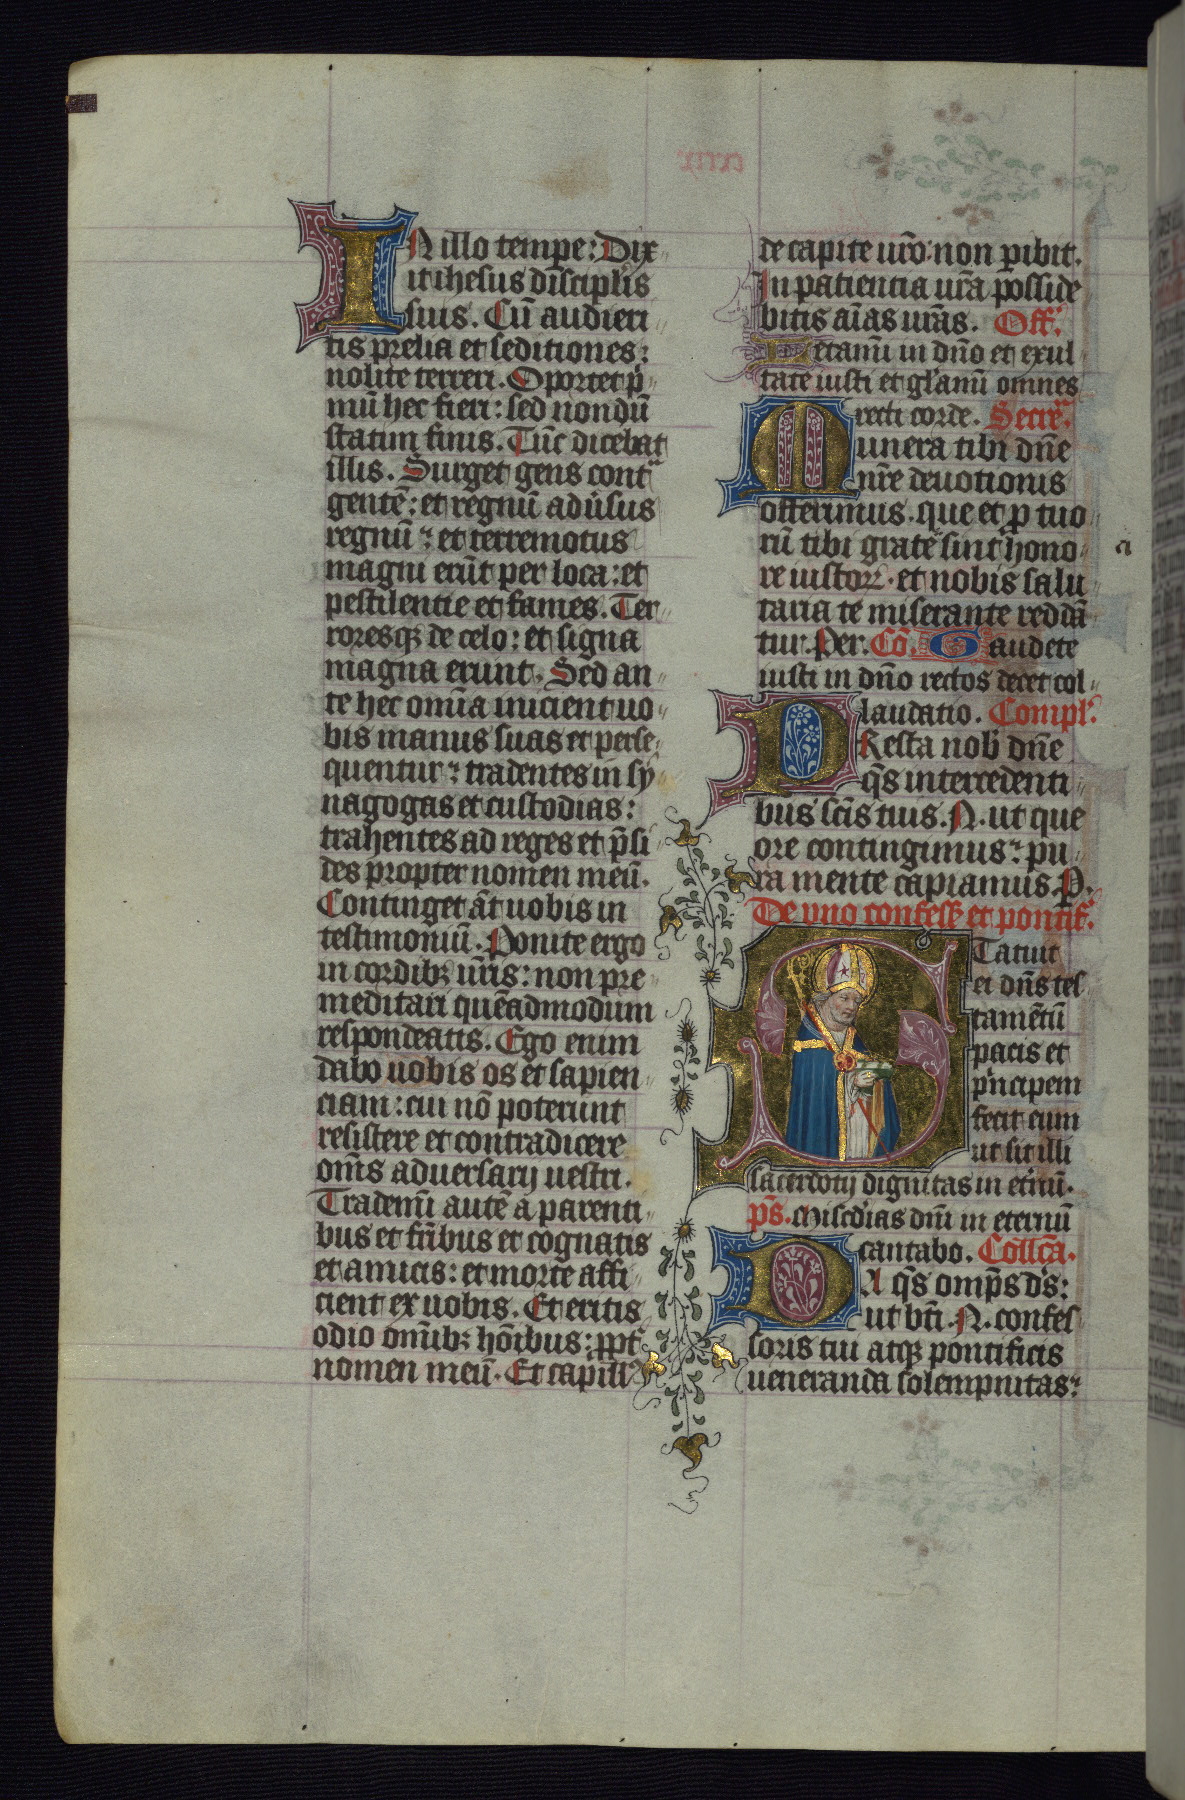 IN illo tempe: Dix
it ihesus disciplis
suis. Cū audieri
tis prelia et seditiones:
nolite terreri. Oportet p̄
mū hec fieri: sed nondū
statim finis. Tūc dicebat
illis. Surget gens cont̄
gentē: et regnū adūsus
regnū: et terremotus
magni erūt per loca: et
pestilentie et fames. Ter
roresqꝫ de celo: et signa
magna erunt. Sed an
te hec omīa inicient uo
bis manus suas et perse
quentur: tradentes in sy
nagogas et custodias:
trahentes ad reges et p̄si
des propter nomen meū.
Continget āt uobis in
testimoniū. Ponite ergo
in cordibꝫ ur̄is: non pre
meditari quēadmodum
respondeatis. Ego enim
dabo uobis os et sapien
ciam: cui nō poterunt
resistere et contradicere
om̄s adversarij uestri.
Trademī autē a parenti
bus et fr̄ibus et cognatis
et amicis: et morte affi
cient ex uobis. Et eritis
odio om̄ibꝫ hōibus: ꝓpt̄
nomen meū. Et capill'
de capite ur̄o: non ꝑibit.
In patientia ur̄a posside
bitis aīas ur̄as. Off̄.
Letamī in dn̄o et exul
tate iusti et gl'amī omnes
recti corde. Secre͞.
Munera tibi dn̄e
nr̄e deuotionis
offerimus. que et ꝓ tuo
rū tibi grate sint hono
re iustoꝝ. et nobis salu
taria te miserante reddā
tur. Per. Cō. Gaudete
iusti in dn̄o rectos decet col
laudatio. Compl'.
PResta nob' dn̄e
q̄s intercedenti
bus sc̄is tuis. N. ut que
ore contingimus: pu
ra mente capiamus. P.
De vno confess' et pontif'.
STatuit
ei dn̄s tes
tamētū
pacis et
p'ncipem
fecit eum
ut sit illi
sacerdotij dignitas in et'nū.
p̄s. Mis'cdias dn̄i in eternū
cantabo. Coll'ca.
DA q̄s omp̄s ds̄:
ut bt̄i. N. confes
soris tui atqꝫ pontificis
ueneranda solempnitas: